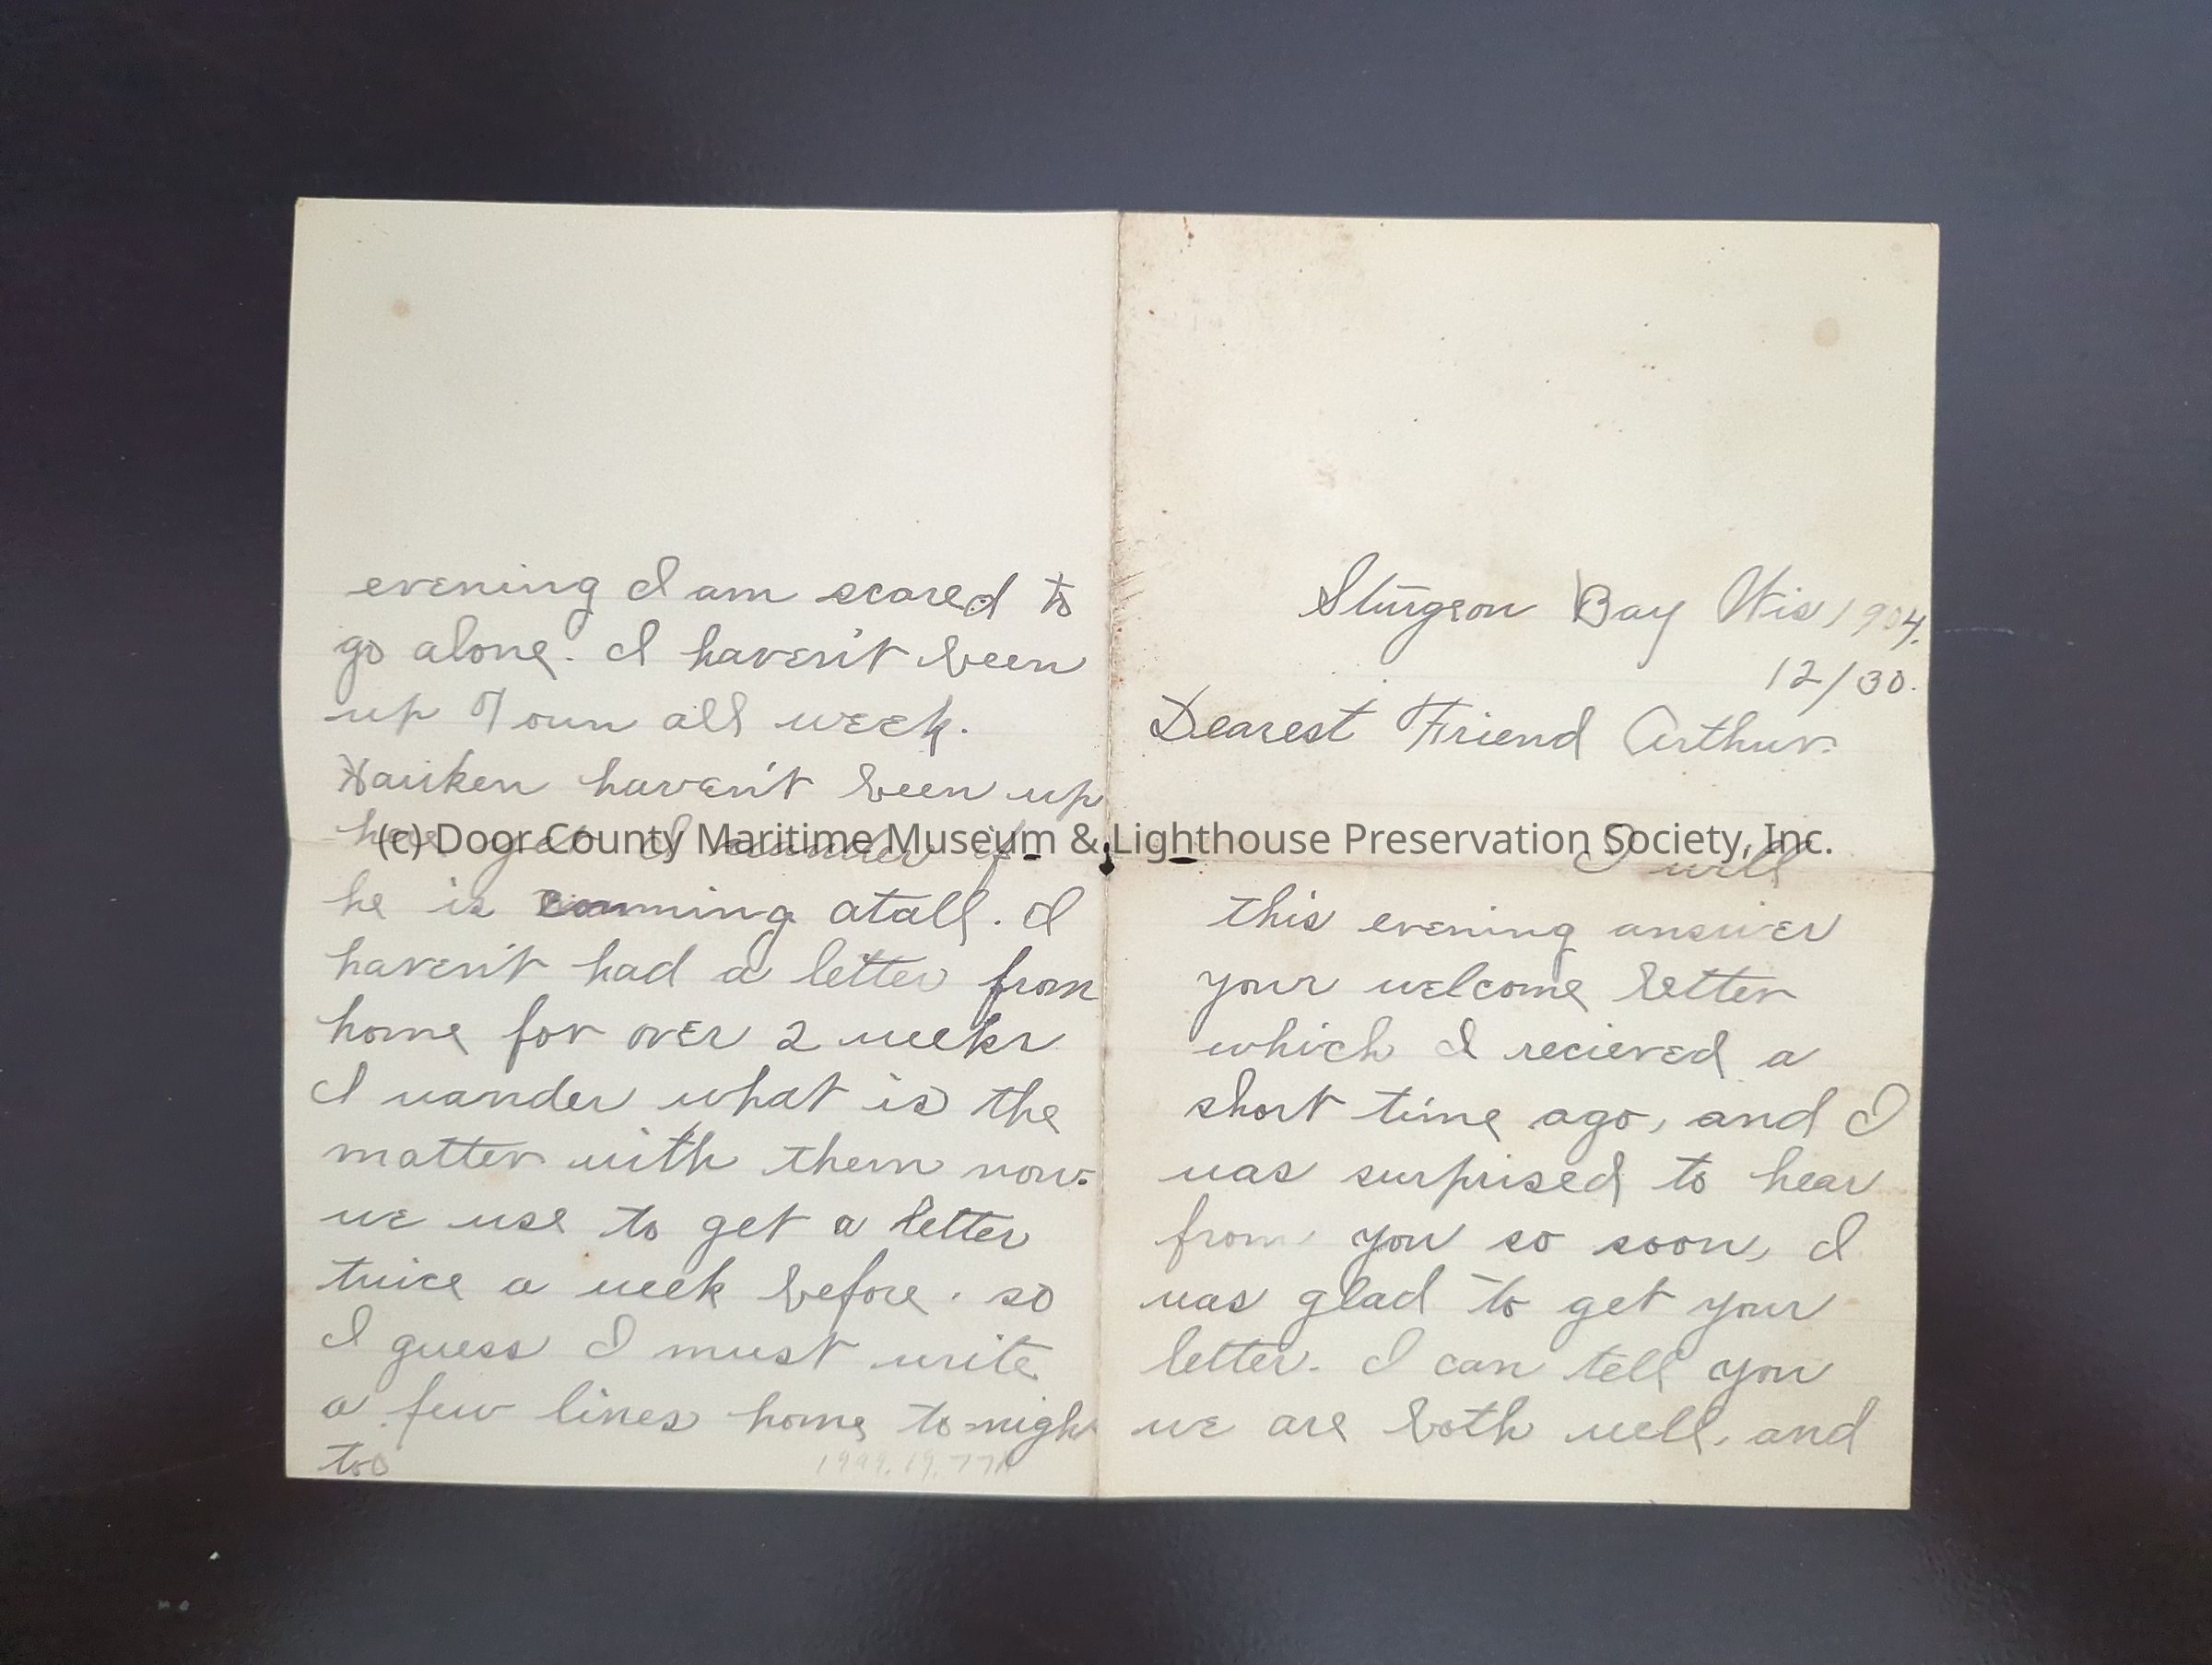 Sturgeon Bay Wis 1904.
12/30.
Dearest Friend Arthur.
I will
this evening answer
your welcome letter
which I recieved a
short time ago, and I
was surprised to hear
from you so soon, I
was glad to get your
letter. I can tell you
we are both well, and
evening I am scared to
go alone. I haven't been
up Town all week.
haven't been up
here yet I wander if
he is comming atall. I
haven't had a letter from
home for over 2 weeks
I wander what is the
matter with them now.
we use to get a letter
twice a week before. so
I guess I must write
a few lines home to-night
too
1999.19.77A
(c) Door County Maritime Museum & Lighthouse Preservation Society, Inc.